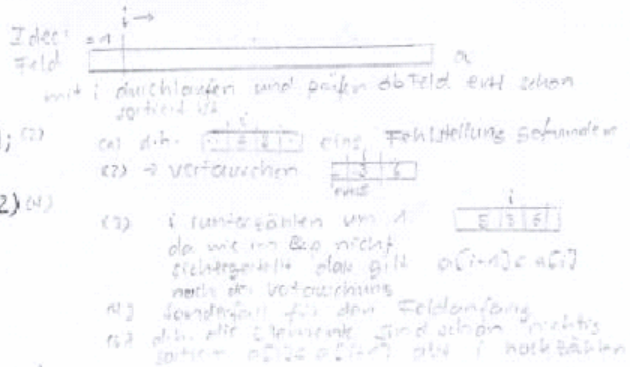 i →
Idee: =1
Feld a
mit i durchlaufen und prüfen ob Feld evtl schon
sortiert ist
1; (2) (1) d.h. i eine Fehlstellung gefunden
(2) → vertauschen i 3 6
2) (4) (3) i runterzählen um 1 i 5 3 6
da wie im Bsp nicht
sichergestellt dass gilt a[i-1] < a[i]
nach der Vertauschung
(4) Sonderfall für den Feldanfang
d.h. die Elemente sind schon richtig
sortiert also i hochzählen